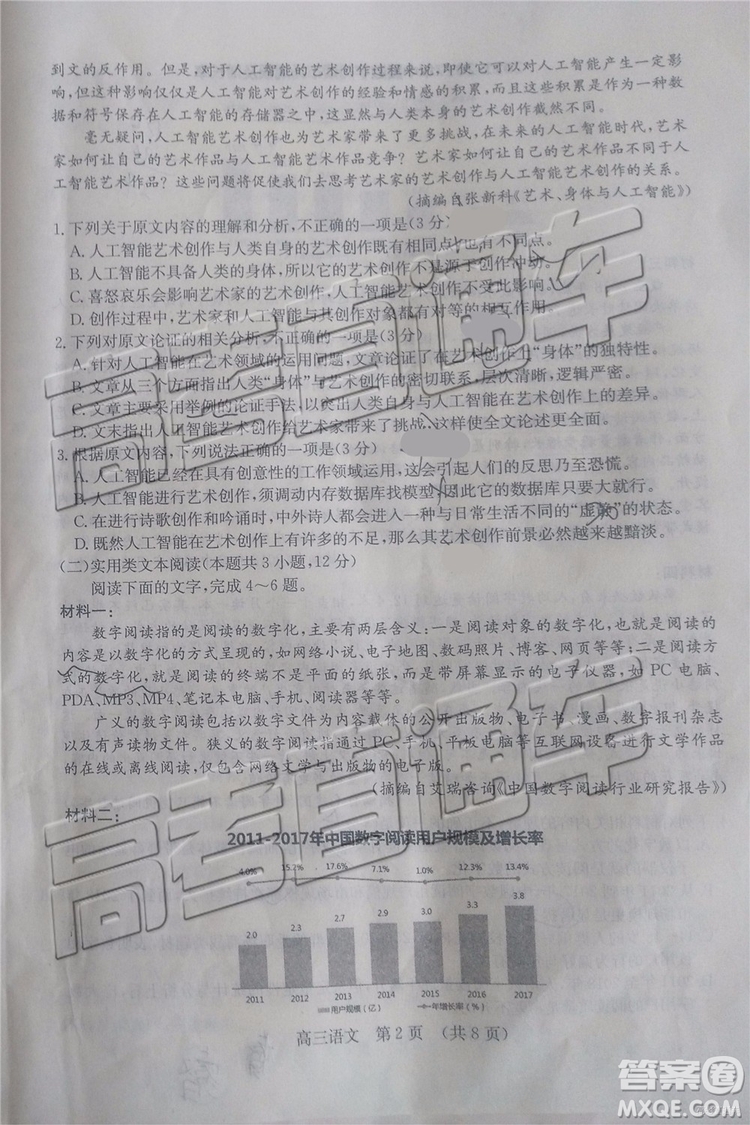 到文的反作用。但是,对于人工智能的艺术创作过程来说,即使它可能对人工智能产生一定影
响,但这种影响仅仅是人工智能对艺术创作的经验和情感的积累,而且这种积累是作为一种数
据和符号保存在人工智能的存储器之中,这显然与人类本身的艺术创作截然不同。
毫无疑问,人工智能艺术创作也为艺术家带来了更多挑战,在未来的人工智能时代,艺术
家如何让自己的艺术作品与人工智能艺术作品竞争?艺术家如何使得自己的艺术作品不同于人
工智能艺术作品?这些问题将促使我们去思考艺术家的艺术创作与人工智能艺术创作的关系。
(摘编自张新科《艺术、身体与人工智能》)
1.下列关于原文内容的理解和分析,不正确的一项是(3分)
A.人工智能艺术创作与人类自身的艺术创作既有相同点也有不同点。
B.人工智能不具备人类的身体,所以它的艺术创作不是源于创作冲动。
C.喜怒哀乐会影响艺术家的艺术创作,人工智能的创作不受此影响。
D.创作过程中,艺术家和人工智能与创作对象都有对等的相互作用。
2.下列对原文论证的相关分析,不正确的一项是(3分)
A.针对人工智能在艺术领域的运用问题,文章论证了在艺术创作上“身体”的独特性。
B.文章从三个方面指出人类“身体”与艺术创作的密切联系,层次清晰,逻辑严密。
C.文章主要采用举例的论证手法,以突出人类与人工智能在艺术创作上的差异。
D.文末指出人工智能艺术创作给艺术家带来了挑战,这样使全文论述更全面。
3.根据原文内容,下列说法正确的一项是(3分)
A.人工智能已经在具有创意性的工作领域运用,这会引起人们的反思乃至恐慌。
B.人工智能进行艺术创作,须调动内存数据库找模型,因此它的数据库只要大就行。
C.在进行诗歌创作和吟诵时,中外诗人都会进入一种与日常生活不同的“虚静”的状态。
D.既然人工智能艺术创作有许多的不足,那么人工智能艺术创作前景必然越来越黯淡。
(二)实用类文本阅读(本题共3小题,12分)
阅读下面的文字,完成4~6题。
材料一:
数字阅读指的是阅读的数字化,主要有两层含义:一是阅读对象的数字化,也就是阅读的
内容是以数字化的方式呈现的,如网络小说、电子地图、数码照片、博客、网页等等;二是阅读方
式的数字化,就是阅读的终端不是平面的纸张,而是带屏幕显示的电子仪器,如 PC 电脑、
PDA、MP3、MP4、笔记本电脑、手机、阅读器等等。
广义的数字阅读包括以数字文件为内容载体的公开出版物、电子书、漫画、数字报刊杂志
以及有声读物文件。狭义的数字阅读指通过 PC、手机、平板电脑等互联网设备进行文学作品
的在线或离线阅读,仅包含网络文学与出版物的电子版。
(摘编自艾瑞咨询《中国数字阅读行业研究报告》)
材料二:
2011-2017年中国数字阅读用户规模及增长率
4.0% 15.2% 17.6% 7.1% 1.0% 12.3% 13.4%
2.0 2.3 2.7 2.9 3.0 3.3 3.8
2011 2012 2013 2014 2015 2016 2017
用户规模(亿) 年增长率(%)
高三语文 第2页 (共8页)
高考直通车
高考直通车
答案圈
MXQE.COM